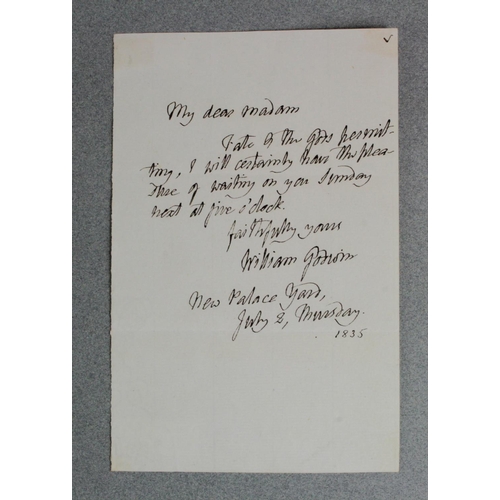 My dear madam
Fate & the Gods permit-
ting, I will certainly have the plea-
sure of waiting on you Sunday
next at five o'clock.
faithfully yours
William Godwin
New Palace Yard,
July 2, Thursday.
1835